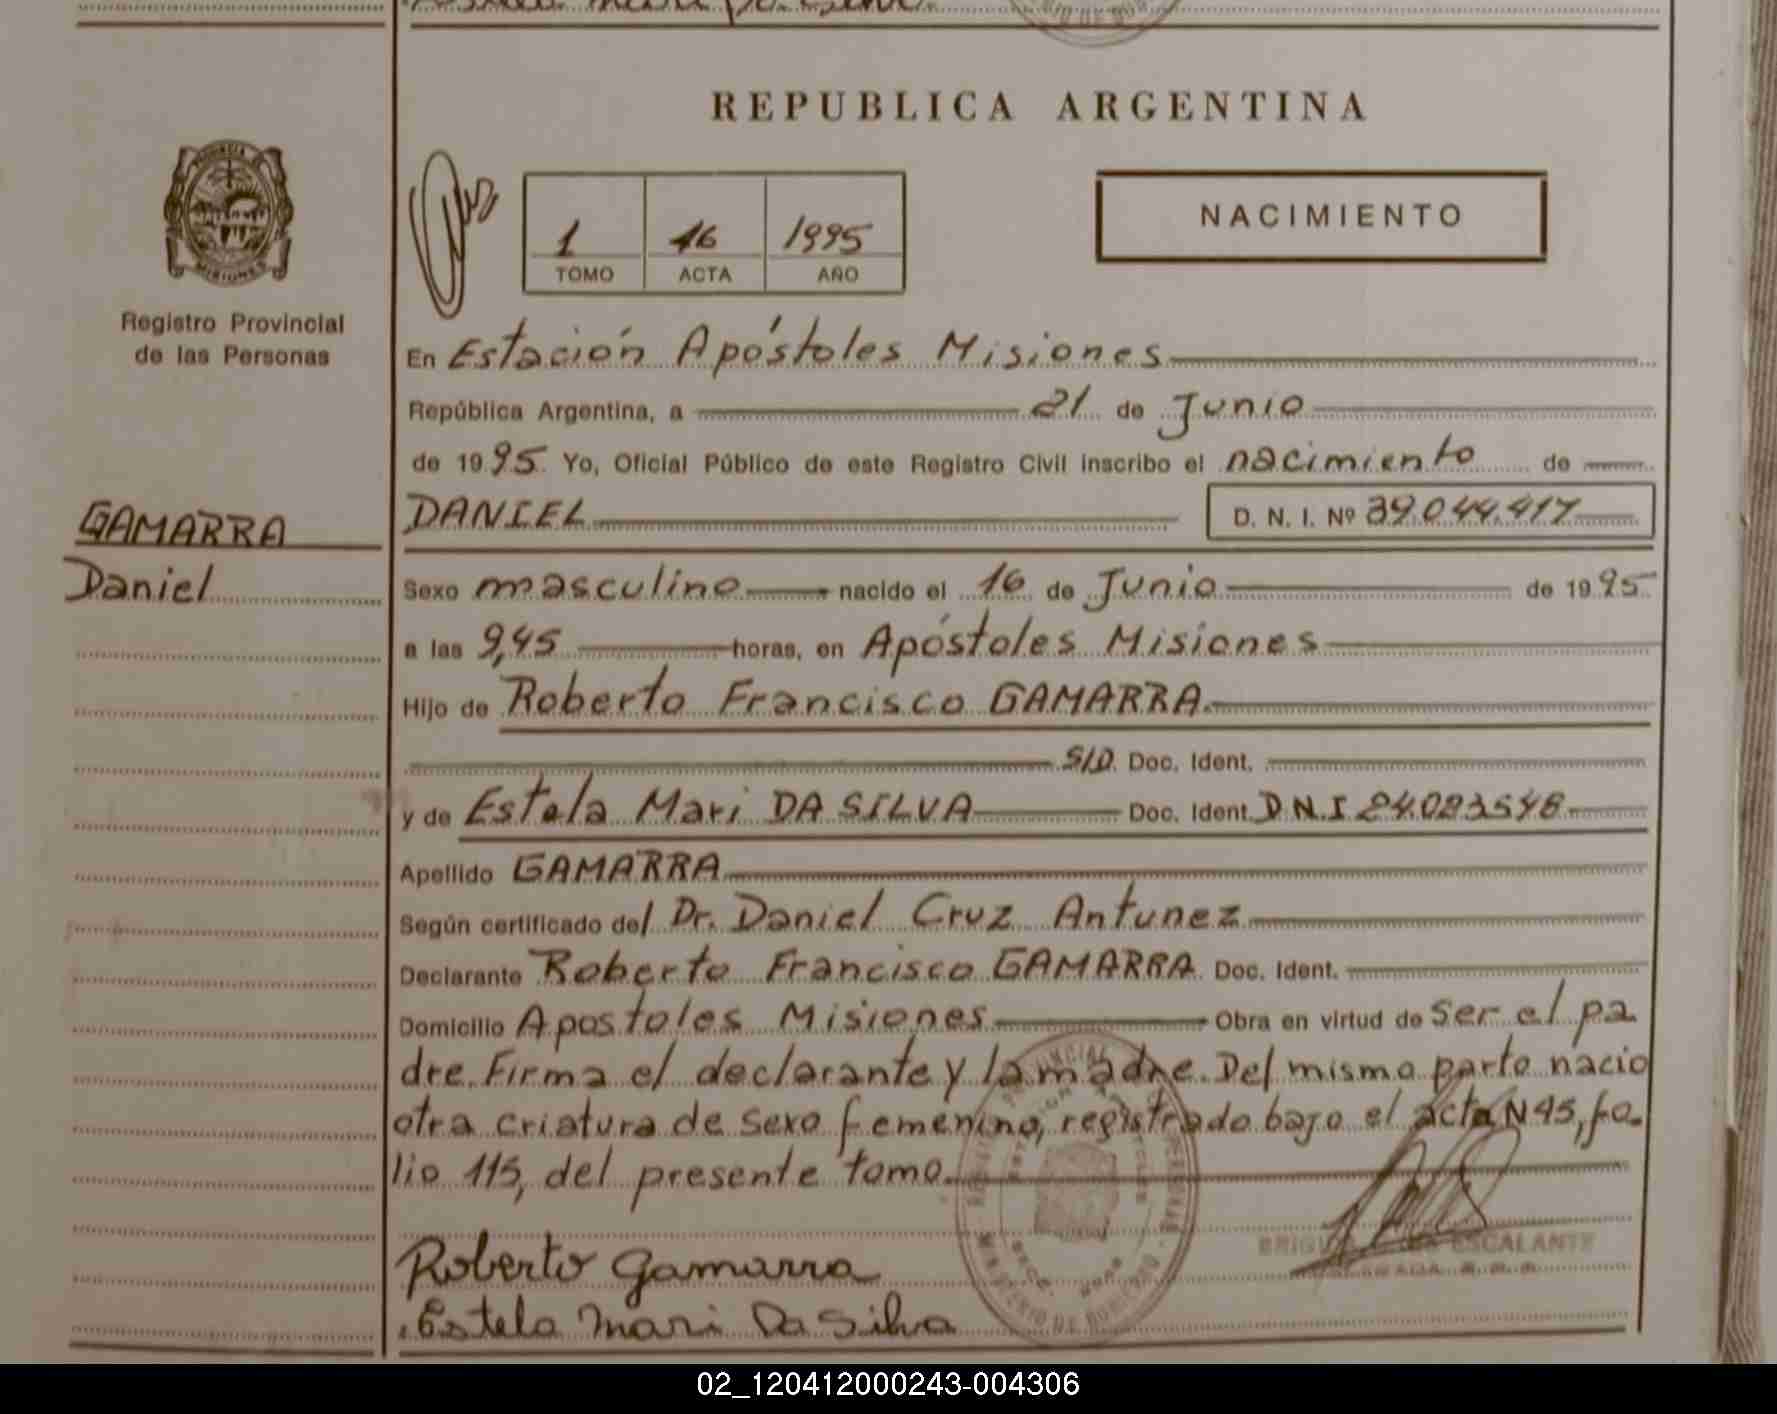 REPUBLICA ARGENTINA
PROVINCIA DE
MISIONES
Registro Provincial
de las Personas
1 16 1995
TOMO ACTA AÑO
NACIMIENTO
En Estación Apóstoles Misiones
República Argentina, a 21 de Junio
de 1995 Yo, Oficial Público de este Registro Civil inscribo el nacimiento de
GAMARRA
Daniel
DANIEL D. N. I. Nº 39.044.417
Sexo masculino nacido el 16 de Junio de 1995
a las 9,45 horas, en Apóstoles Misiones
Hijo de Roberto Francisco GAMARRA
S/D. Doc. Ident.
y de Estela Mari DA SILVA Doc. Ident. D.N.I 24.023548
Apellido GAMARRA
Según certificado del Dr. Daniel Cruz Antunez
Declarante Roberto Francisco GAMARRA Doc. Ident.
Domicilio Apostoles Misiones Obra en virtud de ser el pa
dre. Firma el declarante y la madre. Del mismo parto nacio
otra criatura de sexo femenino, registrado bajo el acta N 95, fo-
lio 115, del presente tomo.
ESCALANTE
Roberto Gamarra
Estela Mari Da Silva
02_120412000243-004306